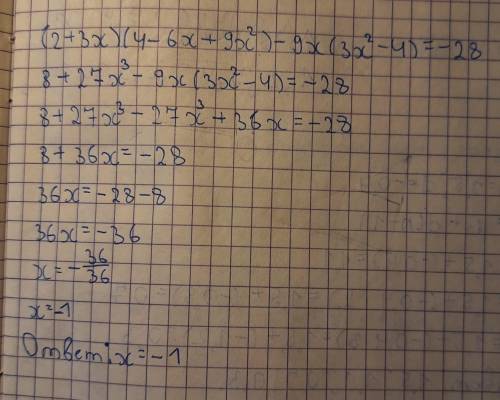 (2+3x)(4-6x+9x²)-9x(3x²-4)=-28
8+27x³-9x(3x²-4)=-28
8+27x³-27x³+36x=-28
8+36x=-28
36x=-28-8
36x=-36
x=-36/36
x=-1
Ответ: x=-1